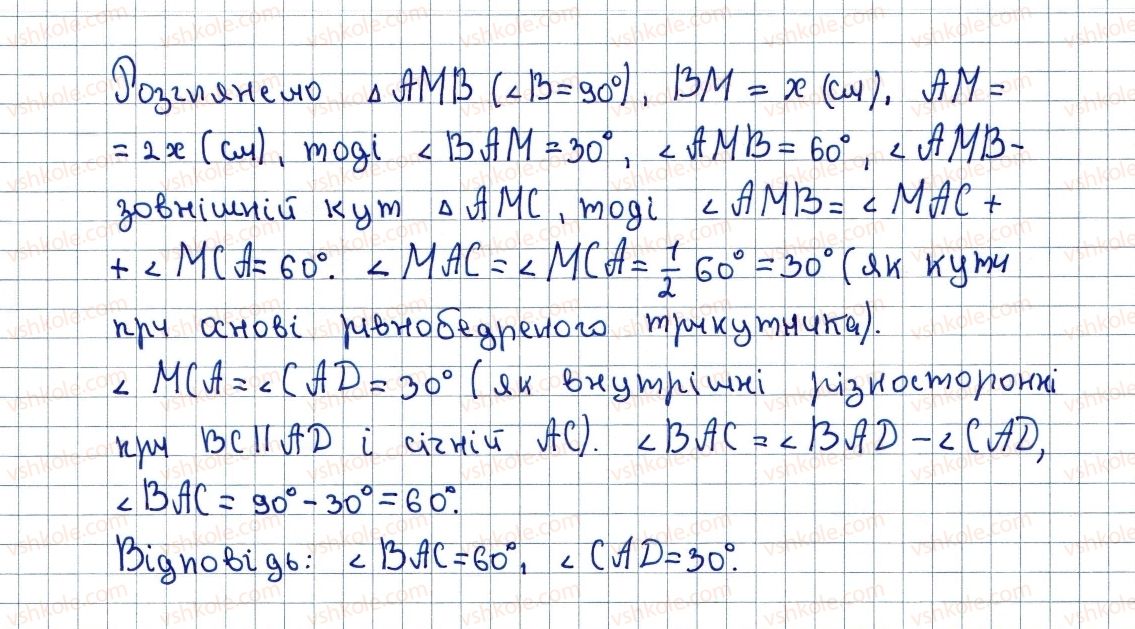 Розглянемо △ AMB (∠B = 90°), BM = x (см), AM =
= 2x (см), тоді ∠ BAM = 30°, ∠ AMB = 60°, ∠ AMB –
зовнішній кут △ AMC, тоді ∠ AMB = ∠ MAC +
+ ∠ MCA = 60°. ∠ MAC = ∠ MCA = 1/2 60° = 30° (як кути
при основі рівнобедреного трикутника).
∠ MCA = ∠ CAD = 30° (як внутрішні різносторонні
при BC || AD і січній AC). ∠ BAC = ∠ BAD – ∠ CAD,
∠ BAC = 90° – 30° = 60°.
Відповідь: ∠ BAC = 60°, ∠ CAD = 30°.
vshkole.com